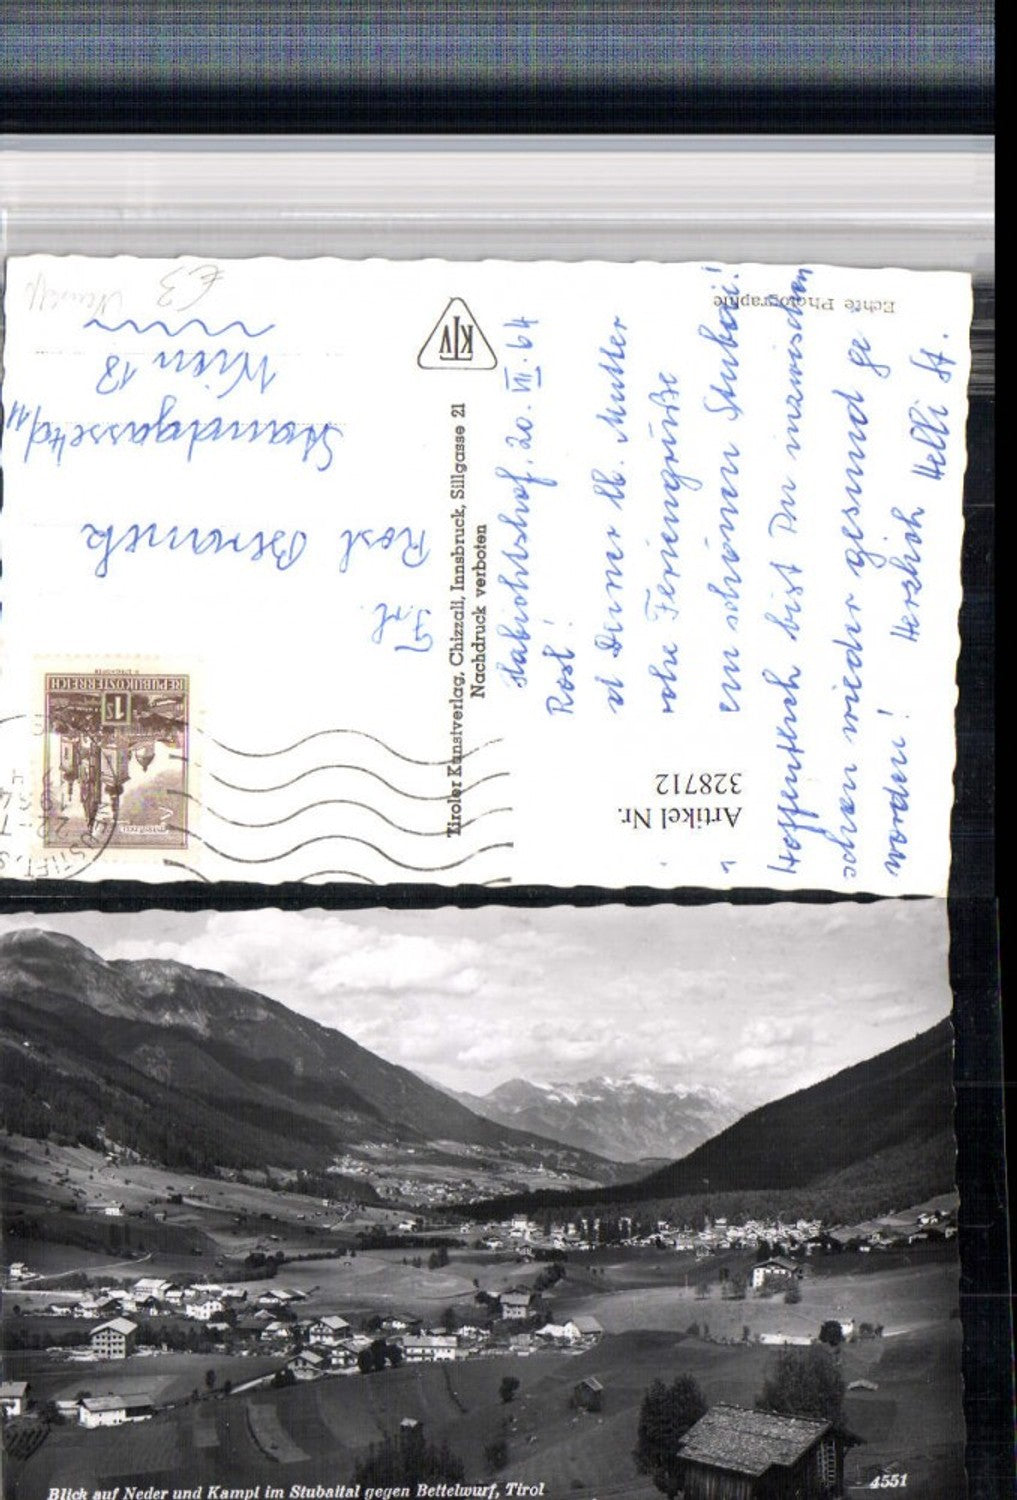 Habichtshof, 20. VII. 64
Rosl!
st Deiner lb. Mutter
rohe Feriengrüße
em schönen Stubai!
Hoffentlich bist Du inzwischen
schon wieder gesund ge
worden!
Herzlich Helli St.
Frl.
Rosl
Wien 18
€3
KTV
Tiroler Kunstverlag, Chizzali, Innsbruck, Sillgasse 21
Nachdruck verboten
Echte Photographie
Artikel Nr.
328712
REPUBLIK ÖSTERREICH
1S
Blick auf Neder und Kampl im Stubaital gegen Bettelwurf, Tirol
4551